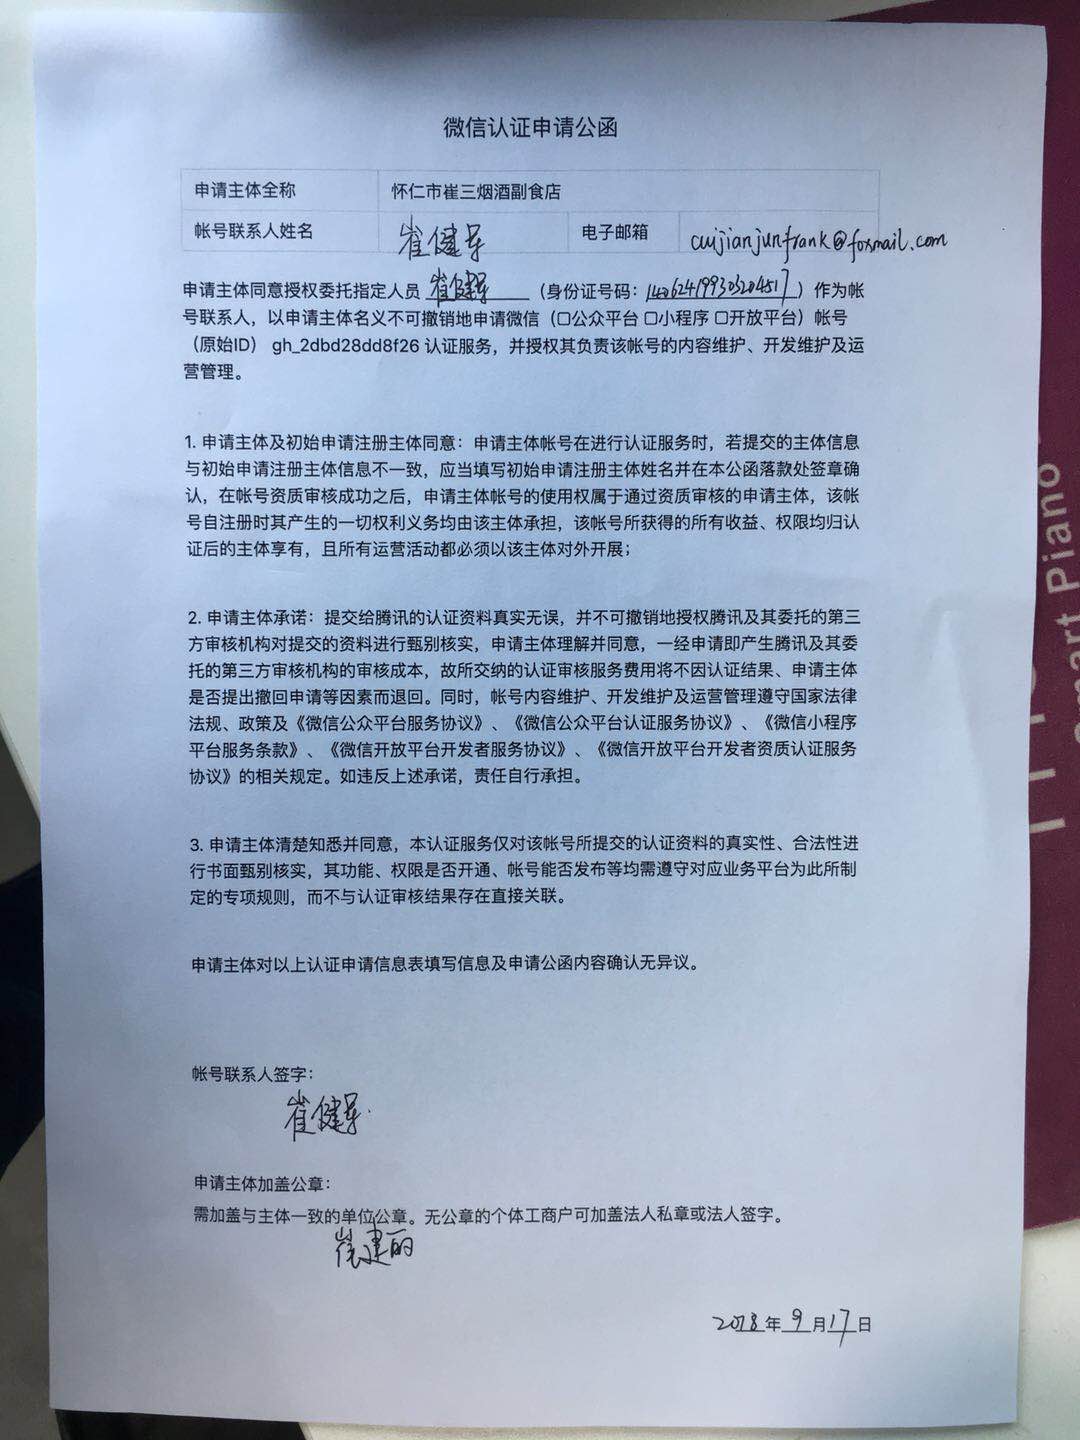 微信认证申请公函
申请主体全称 怀仁市崔三烟酒副食店
帐号联系人姓名 崔健军 电子邮箱 cuijianjunfrank@foxmail.com
申请主体同意授权委托指定人员 崔健军 （身份证号码：140624199305204517）作为帐
号联系人，以申请主体名义不可撤销地申请微信（□公众平台 □小程序 □开放平台）帐号
（原始ID） gh_2dbd28dd8f26 认证服务，并授权其负责该帐号的内容维护、开发维护及运
营管理。
1. 申请主体及初始申请注册主体同意：申请主体帐号在进行认证服务时，若提交的主体信息
与初始申请注册主体信息不一致，应当填写初始申请注册主体姓名并在本公函落款处签章确
认，在帐号资质审核成功之后，申请主体帐号的使用权属于通过资质审核的申请主体，该帐
号自注册时其产生的一切权利义务均由该主体承担，该帐号所获得的所有收益、权限均归认
证后的主体享有，且所有运营活动都必须以该主体对外开展；
2. 申请主体承诺：提交给腾讯的认证资料真实无误，并不可撤销地授权腾讯及其委托的第三
方审核机构对提交的资料进行甄别核实，申请主体理解并同意，一经申请即产生腾讯及其委
托的第三方审核机构的审核成本，故所交纳的认证审核服务费用将不因认证结果、申请主体
是否提出撤回申请等因素而退回。同时，帐号内容维护、开发维护及运营管理遵守国家法律
法规、政策及《微信公众平台服务协议》、《微信公众平台认证服务协议》、《微信小程序
平台服务条款》、《微信开放平台开发者服务协议》、《微信开放平台开发者资质认证服务
协议》的相关规定。如违反上述承诺，责任自行承担。
3. 申请主体清楚知悉并同意，本认证服务仅对该帐号所提交的认证资料的真实性、合法性进
行书面甄别核实，其功能、权限是否开通、帐号能否发布等均需遵守对应业务平台为此所制
定的专项规则，而不与认证审核结果存在直接关联。
申请主体对以上认证申请信息表填写信息及申请公函内容确认无异议。
帐号联系人签字：
崔健军
申请主体加盖公章：
需加盖与主体一致的单位公章。无公章的个体工商户可加盖法人私章或法人签字。
崔建丽
2018年9月17日
Piano